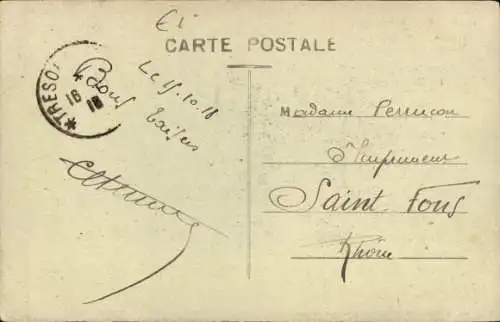 CARTE POSTALE
*TRESOR
*
16
18
Le 15.10.18
Bons
baisers
Madame Perrucon
Saint Fons
Rhône